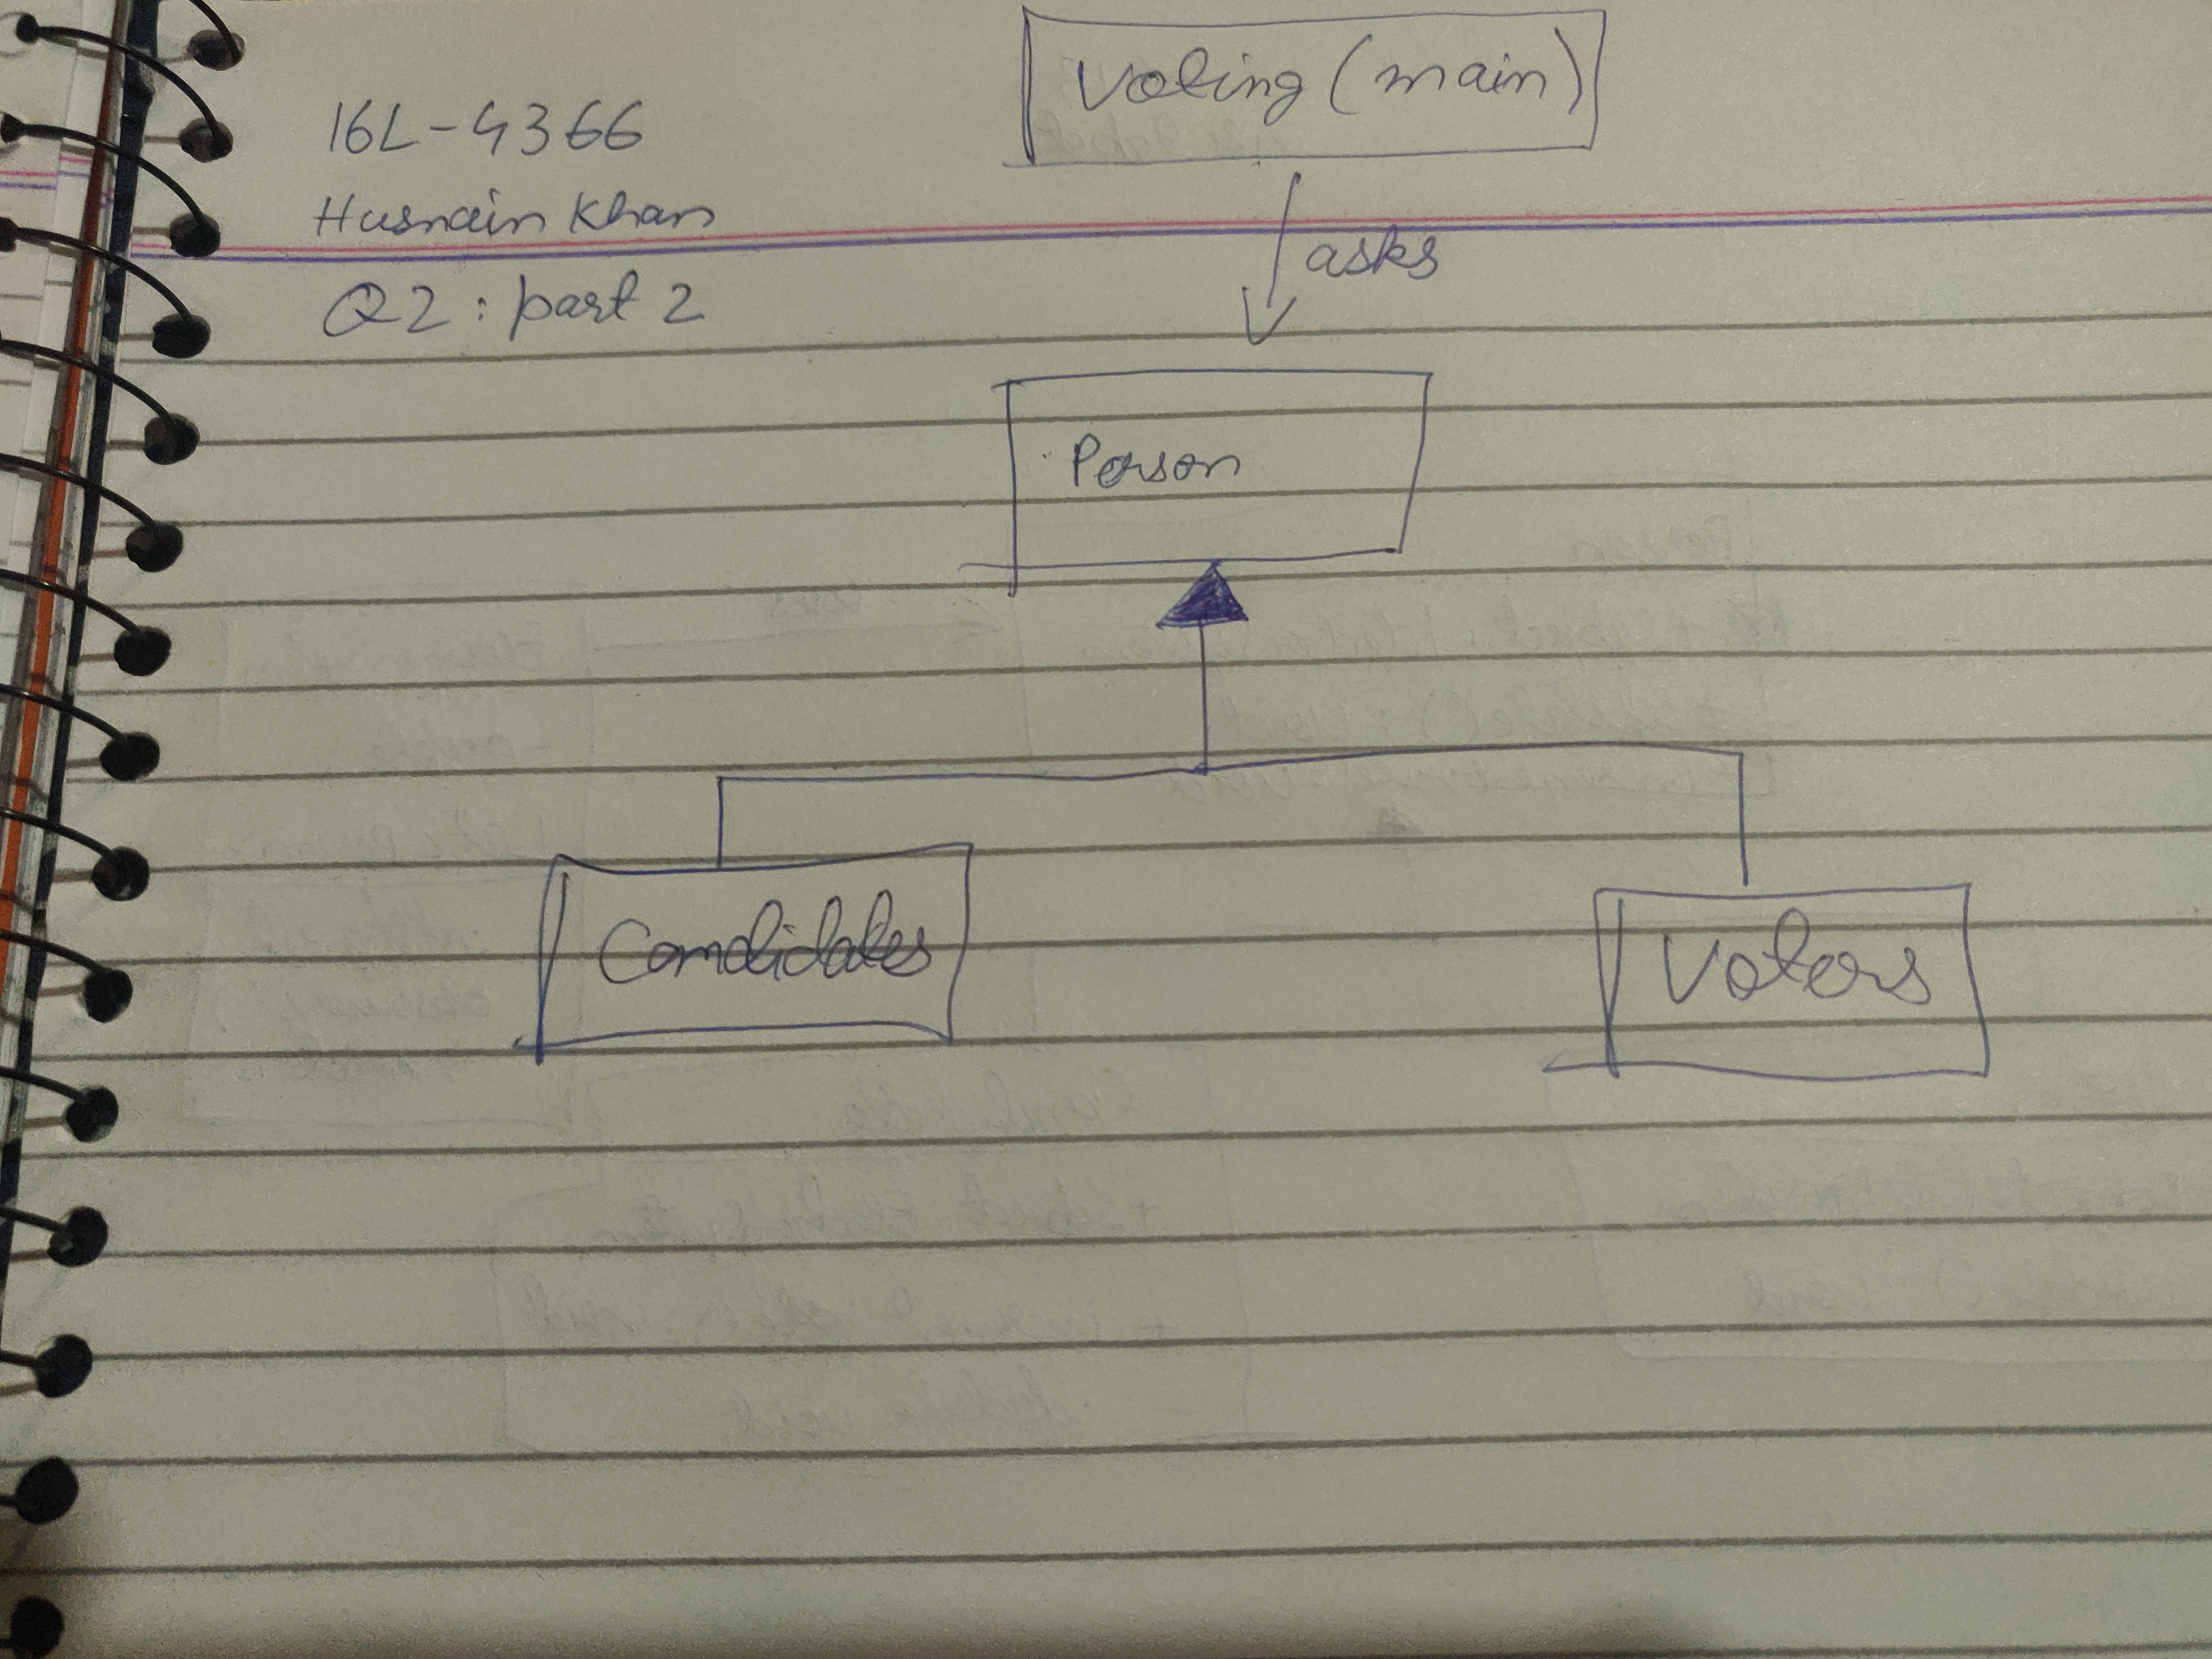 16L-4366
Husnain Khan
Q2: part 2
Voting (main)
asks
Person
Candidates
Voters